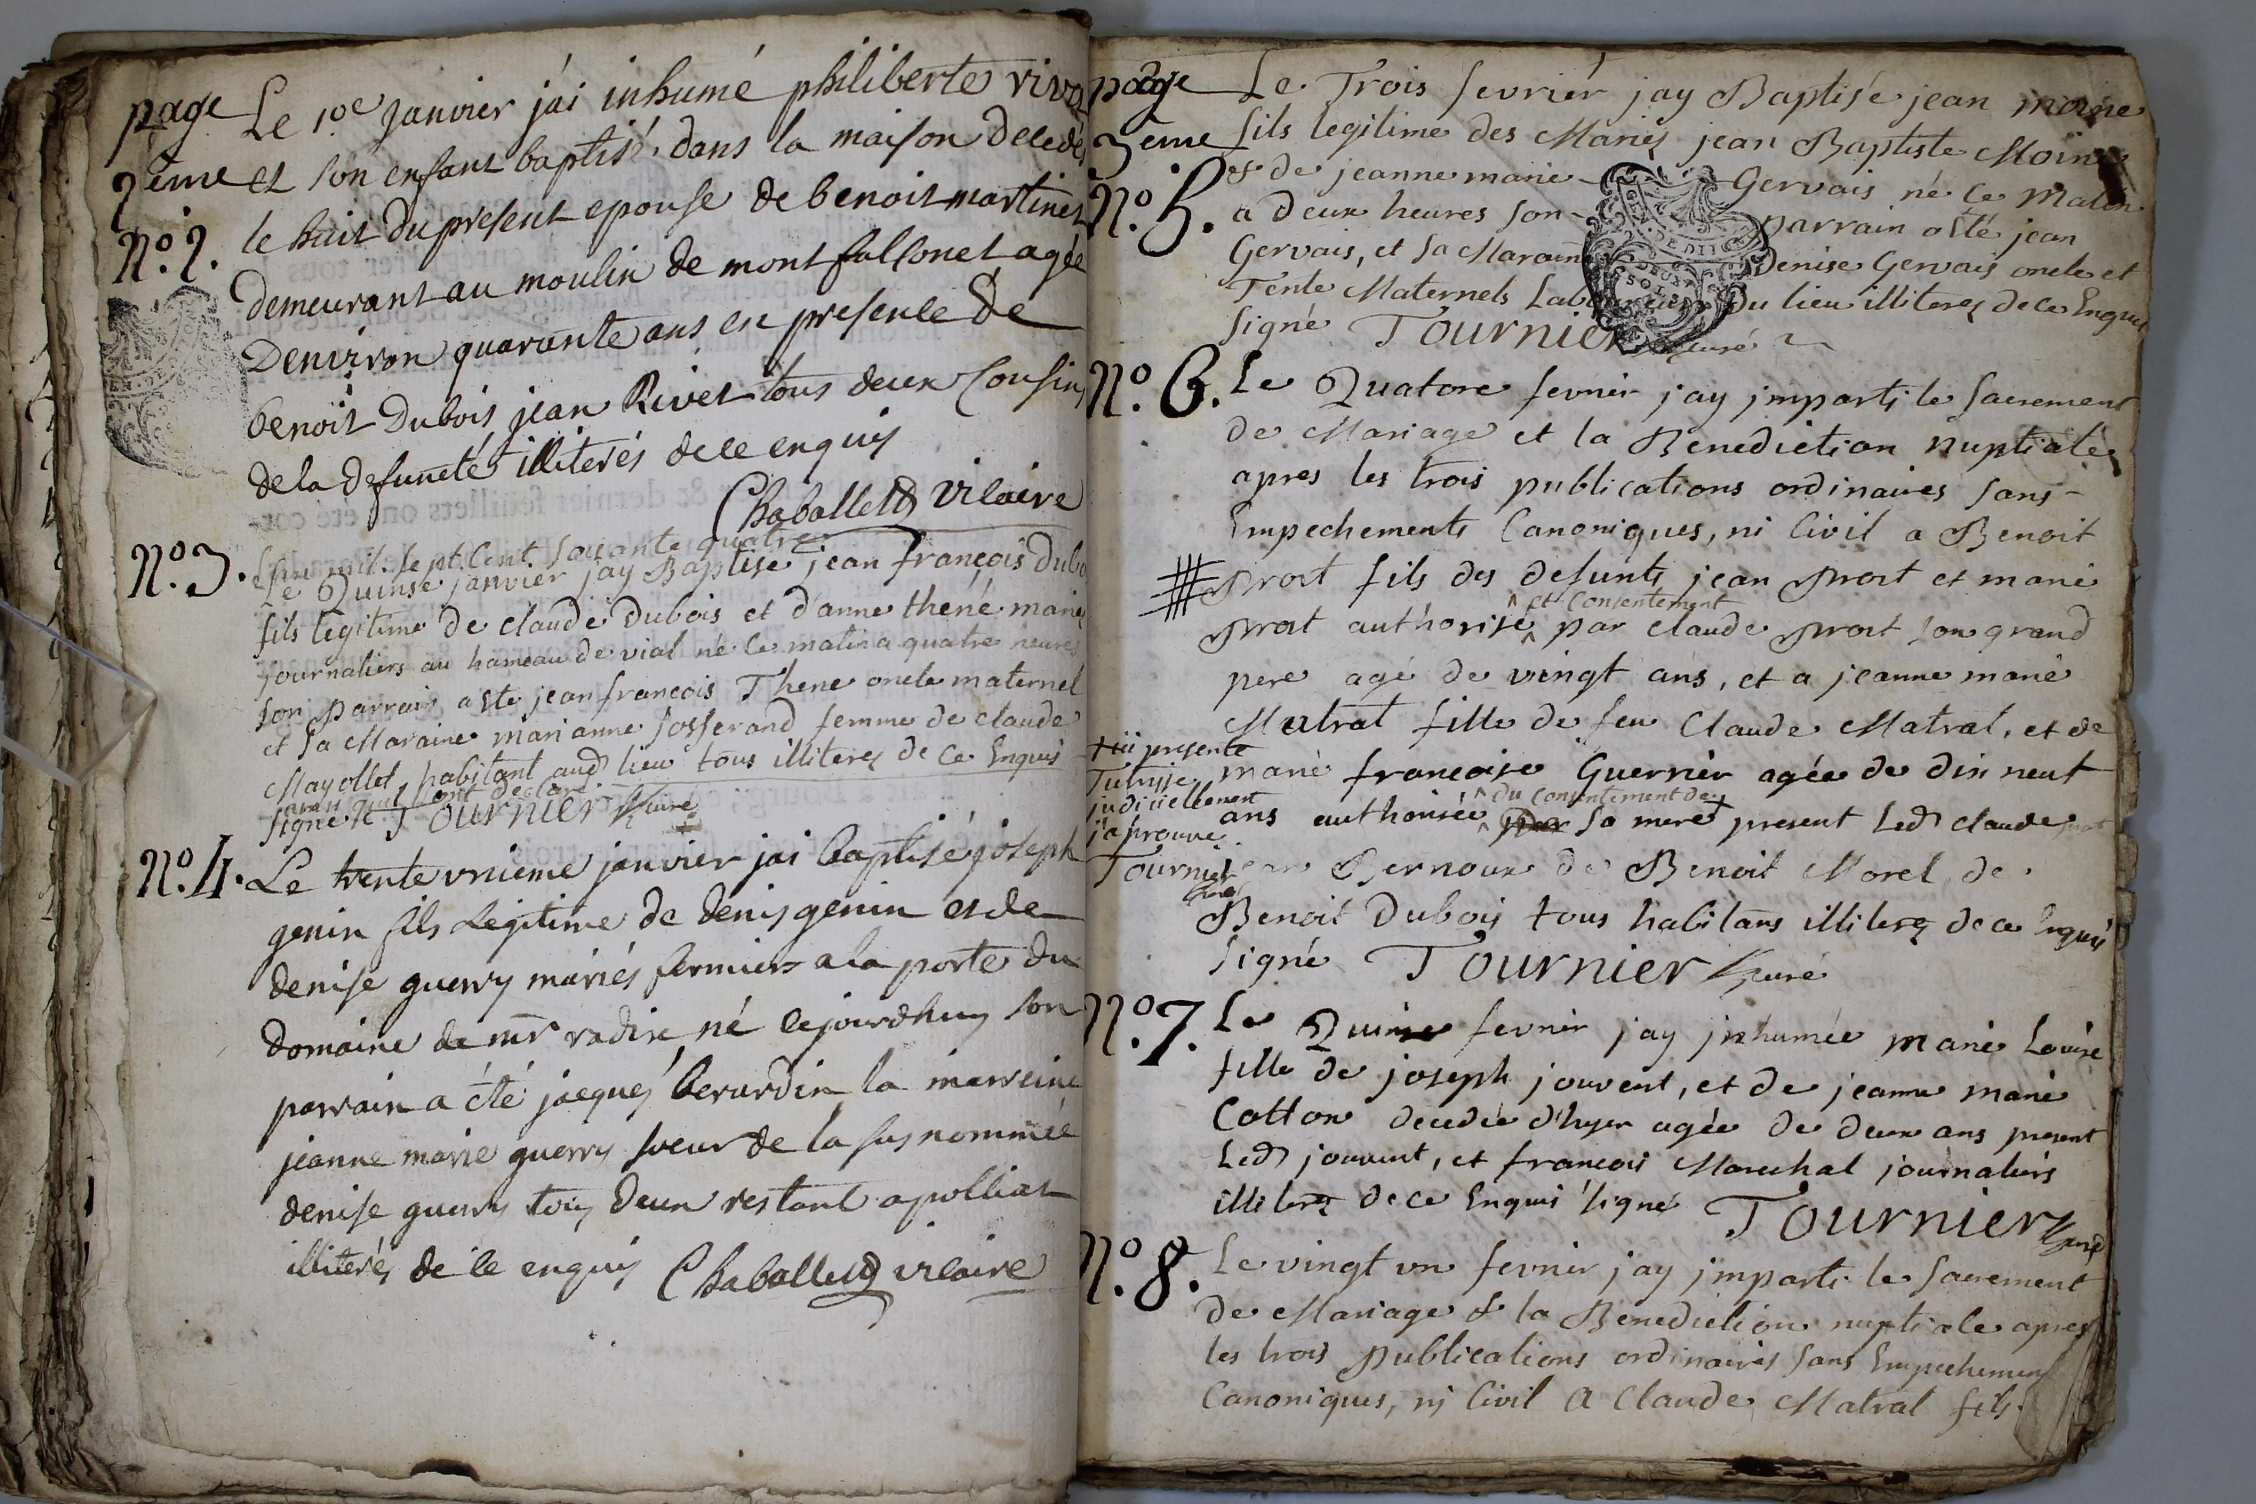 page
2eme
N.º 2.
Le 10e Janvier j'ai inhumé philiberte
et son enfant baptisé dans la maison decedés
le huit du present epouse de benoit martinet
demeurant au moulin de mont fallconet agée
Denviron quarante ans en presence De
benoit Dubois jean Rivet tous deux Cousins
de la defuncté illiterés de ce enquis
Chaballet vicaire
N.º 3.
l'an mil sept Cent soixante quatre
Le Quinse janvier jay Baptisé jean françois
fils legitime de claude Dubois et d'anne thené mariés
journaliers au hameau de vial né ce matin a quatre heures
son parrain a ete jean francois Thene oncle maternel
et sa Maraine marianne Josserand femme de claude
Mayollet habitant aud lieu tous illiteres de ce Enquis
ont declaré
signé Tournier curé
N.º 4.
Le trente unieme janvier jai baptisé joseph
genin fils Legitime de denis genin et de
denise guerry mariés fermiers a la porte du
domaine de mr radix né cejourdhuy son
parrain a été jacques berardin la marreine
jeanne marie guerry soeur de la susnommée
denise guerry tous deux restant a polliat
illiterés de ce enquis Chaballet vicaire
page
3eme
Nº. 5.
Le Trois fevrier jay Baptisé jean moine
fils legitime des Mariés jean Baptiste Moine
& de jeanne marie Gervais né ce Matin
a deux heures son parrain a eté jean
Gervais, et sa Maraine Denise Gervais oncle et
Tente Maternels du lieu illiteres de ce Enquis
signé Tournier curé
Nº. 6.
Le Quatore fevrier jay jmparti le sacrement
de Mariage et la Benediction nuptiale
apres les trois publications ordinaires sans
Empechements Canoniques, ni Civil a Benoit
prost fils des defunts jean prost et marie
et consentement
prost authorisé par claude prost son grand
pere agé de vingt ans, et a jeanne marie
Matral fille de feu Claude Matral, et de
marie francoise Guerrier agée de dix neuf
du consentement de
ans authorisée par sa mere present Led claude
Bernoux de Benoit Morel de
Benoit Dubois tous habitans illiteres de ce Enquis
signé Tournier curé
presente
Tutrisse
judiciellement
j'aprouve
Tournier
curé
Nº. 7.
Le Quinse fevrier jay jnhumée marie Louise
fille de joseph jouvent, et de jeanne marie
Cotton decedée d'hyer agée de deux ans present
Led jouvent, et francois Marechal journaliers
illiteres de ce Enquis signé Tournier curé
Nº. 8.
Le vingt un fevrier jay jmparti le sacrement
de Mariage & la Benediction nuptiale apres
les trois publications ordinaires sans Empechement
Canoniques, nj Civil A Claude Matral fils